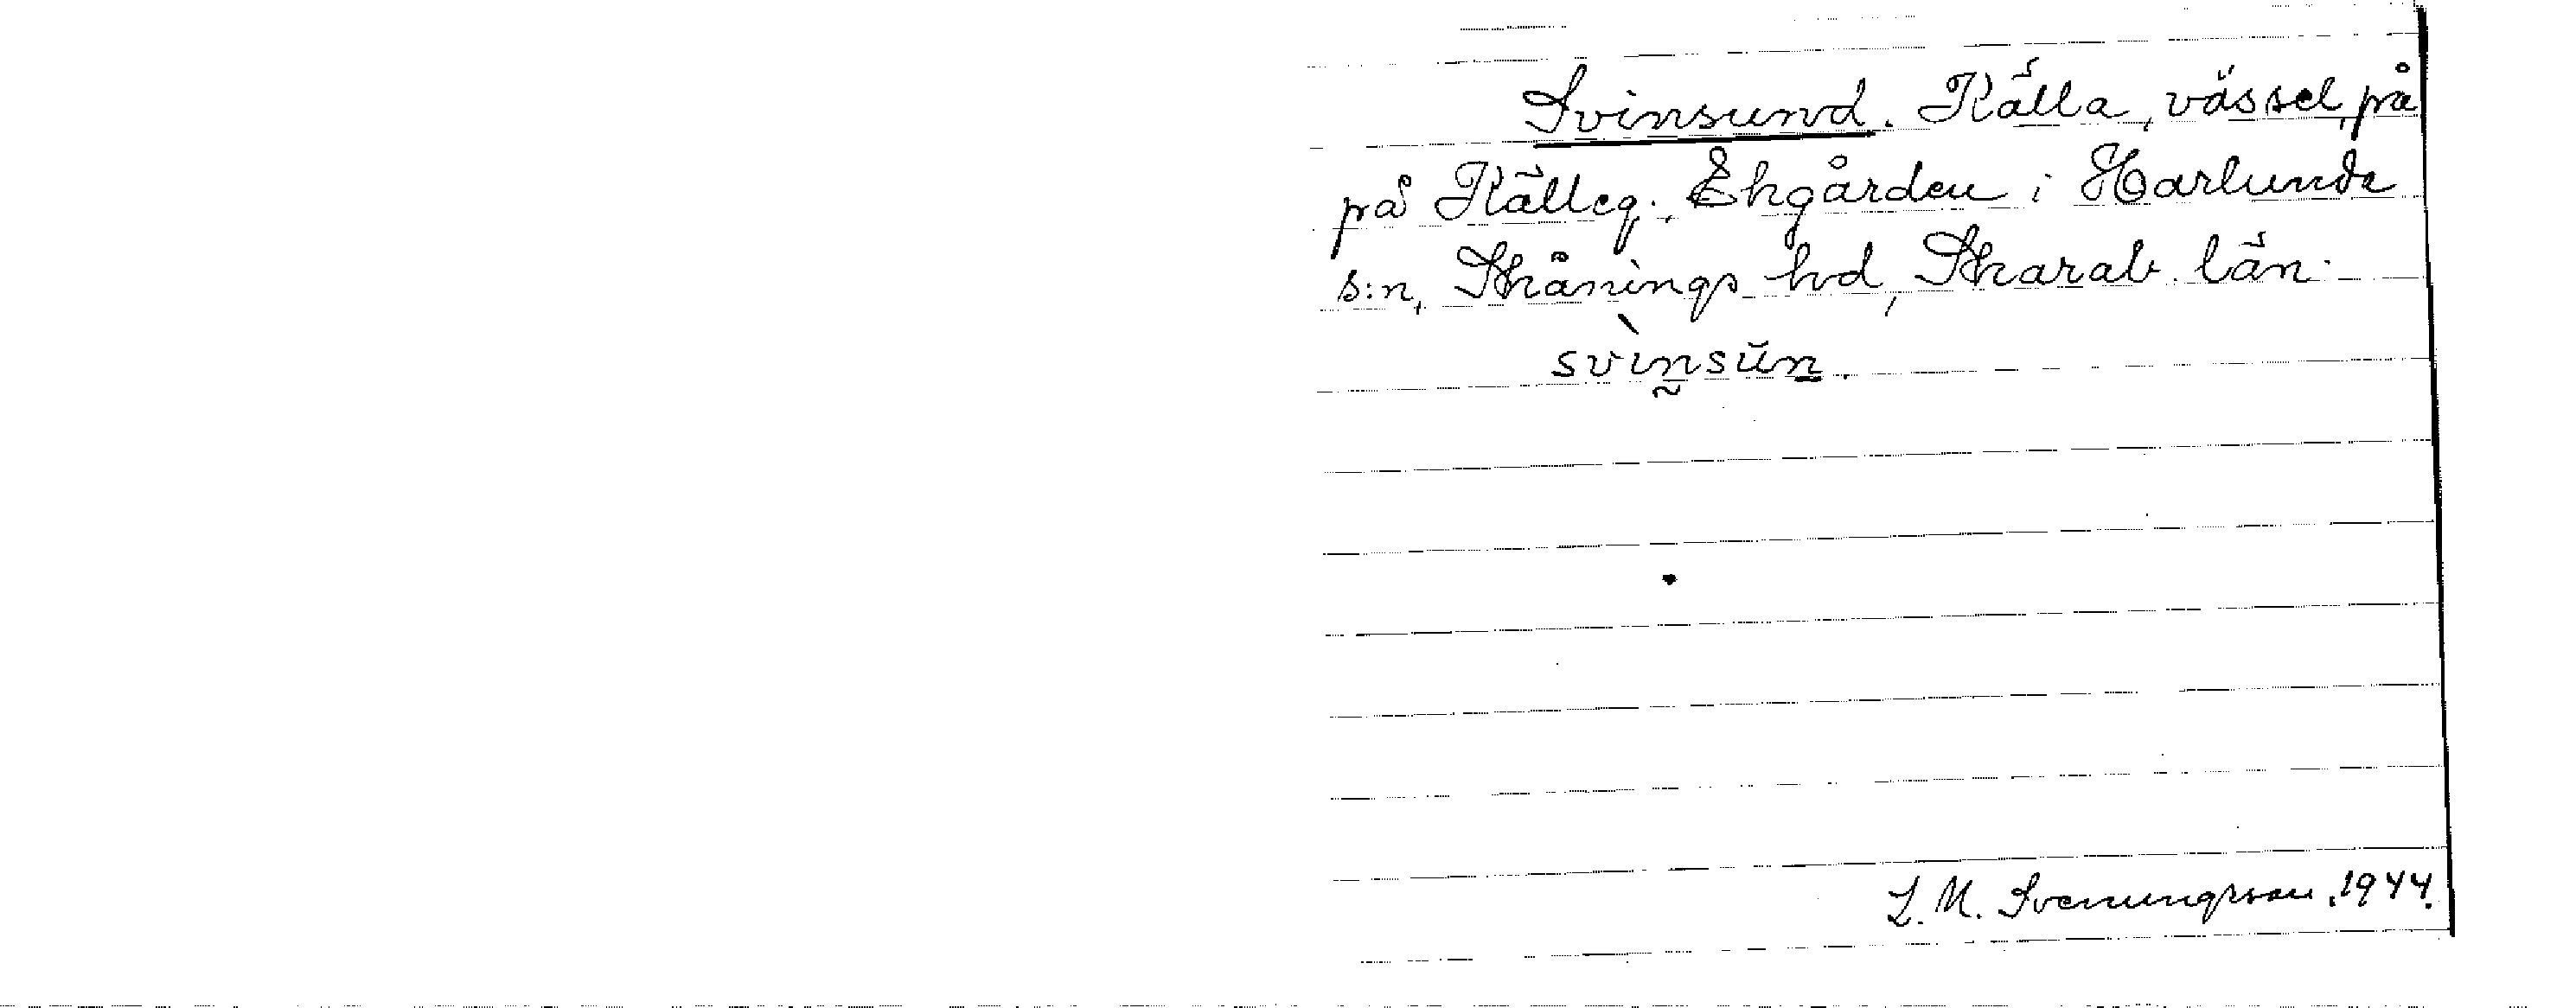 Svinsund. Källa, vässel, på
på Källeg. Ekgården i Harlunda
s:n, Skånings hd, Skarab. län.
svìnsŭn.
L. M. Svenungsson. 1944.